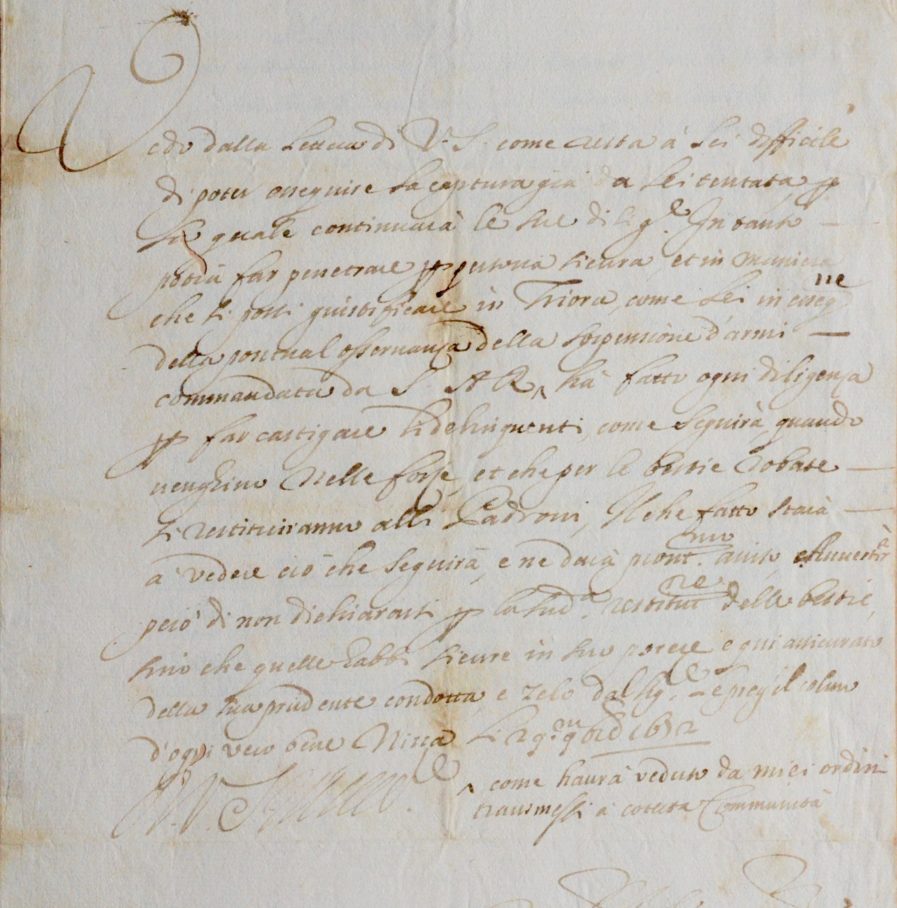 Vedo dalla lettera di V. S. come resta à lei difficile
di poter esseguire la captura già da lei tentata, p
la quale continuarà le sue dilig.e In tanto
potrà far penetrare p persona sicura, et in maniera
che si possi giustificare in Triora, come lei in esseq.ne
della pontual osservanza della sospensione d'armi
commandata da S. A. R. ^ hà fatto ogni diligenza
p far castigare li delinquenti, come seguirà, quando
venghino nelle forze, et che per le bestie robate
si restituiranno alli Padroni, Il che fatto starà
à vedere ciò che seguirà, e ne darà avviso,
però di non dichiararsi p la sud.a restitut.ne delle bestie,
sino che quelle habbi sicure in suo potere e qui assicurato
della sua prudente condotta e zelo dal Sig.re prego il colmo
d'ogni vero bene Nizza li 1672
^ come haurà veduto da miei ordini
transmessi à cotesta Communità